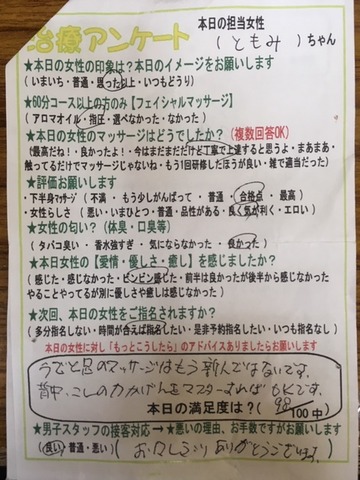 治療アンケート
本日の担当女性
( ともみ )ちゃん
★本日の女性の印象は?本日のイメージをお願いします
(いまいち・普通・思った以上・いつもどうり)
★60分コース以上の方のみ【フェイシャルマッサージ】
(アロマオイル・指圧・選べなかった・なかった)
★本日の女性のマッサージはどうでしたか?(複数回答OK)
(最高だね!・良かったよ!・今はまだまだだけど丁寧で上達すると思うよ・まあまあ・
触ってるだけでマッサージじゃないね・もう1回研修したほうが良い・雑で適当だった)
★評価お願いします
・下半身マッサージ(不満 ・ もう少しがんばって ・ 普通 ・ 合格点 ・ 最高)
・女性らしさ (悪い・いまひとつ・普通・品性がある・良く気が利く・エロい)
★女性の匂い?(体臭・口臭等)
(タバコ臭い ・ 香水強すぎ ・ 気にならなかった ・ 良かった)
★本日女性の【愛情・優しさ・癒し】を感じましたか?
(感じた・感じなかった・ビンビン感じた・前半は良かったが後半から感じなかった
やることやってるが別に優しさや癒しは感じなかった)
★次回、本日の女性をご指名されますか?
(多分指名しない・時間が合えば指名したい・是非予約指名したい・いつも指名なし)
本日の女性に対し「もっとこうしたら」のアドバイスありましたらお願いします
うでと足のマッサージはもう新人ではないです。
背中、こしの力かげんをマスターすればOKです。
本日の満足度は?( 98 100中)
★男子スタッフの接客対応→★悪いの理由、お手数ですがお願いします
(良い・普通・悪い)( ありがとうございます。)